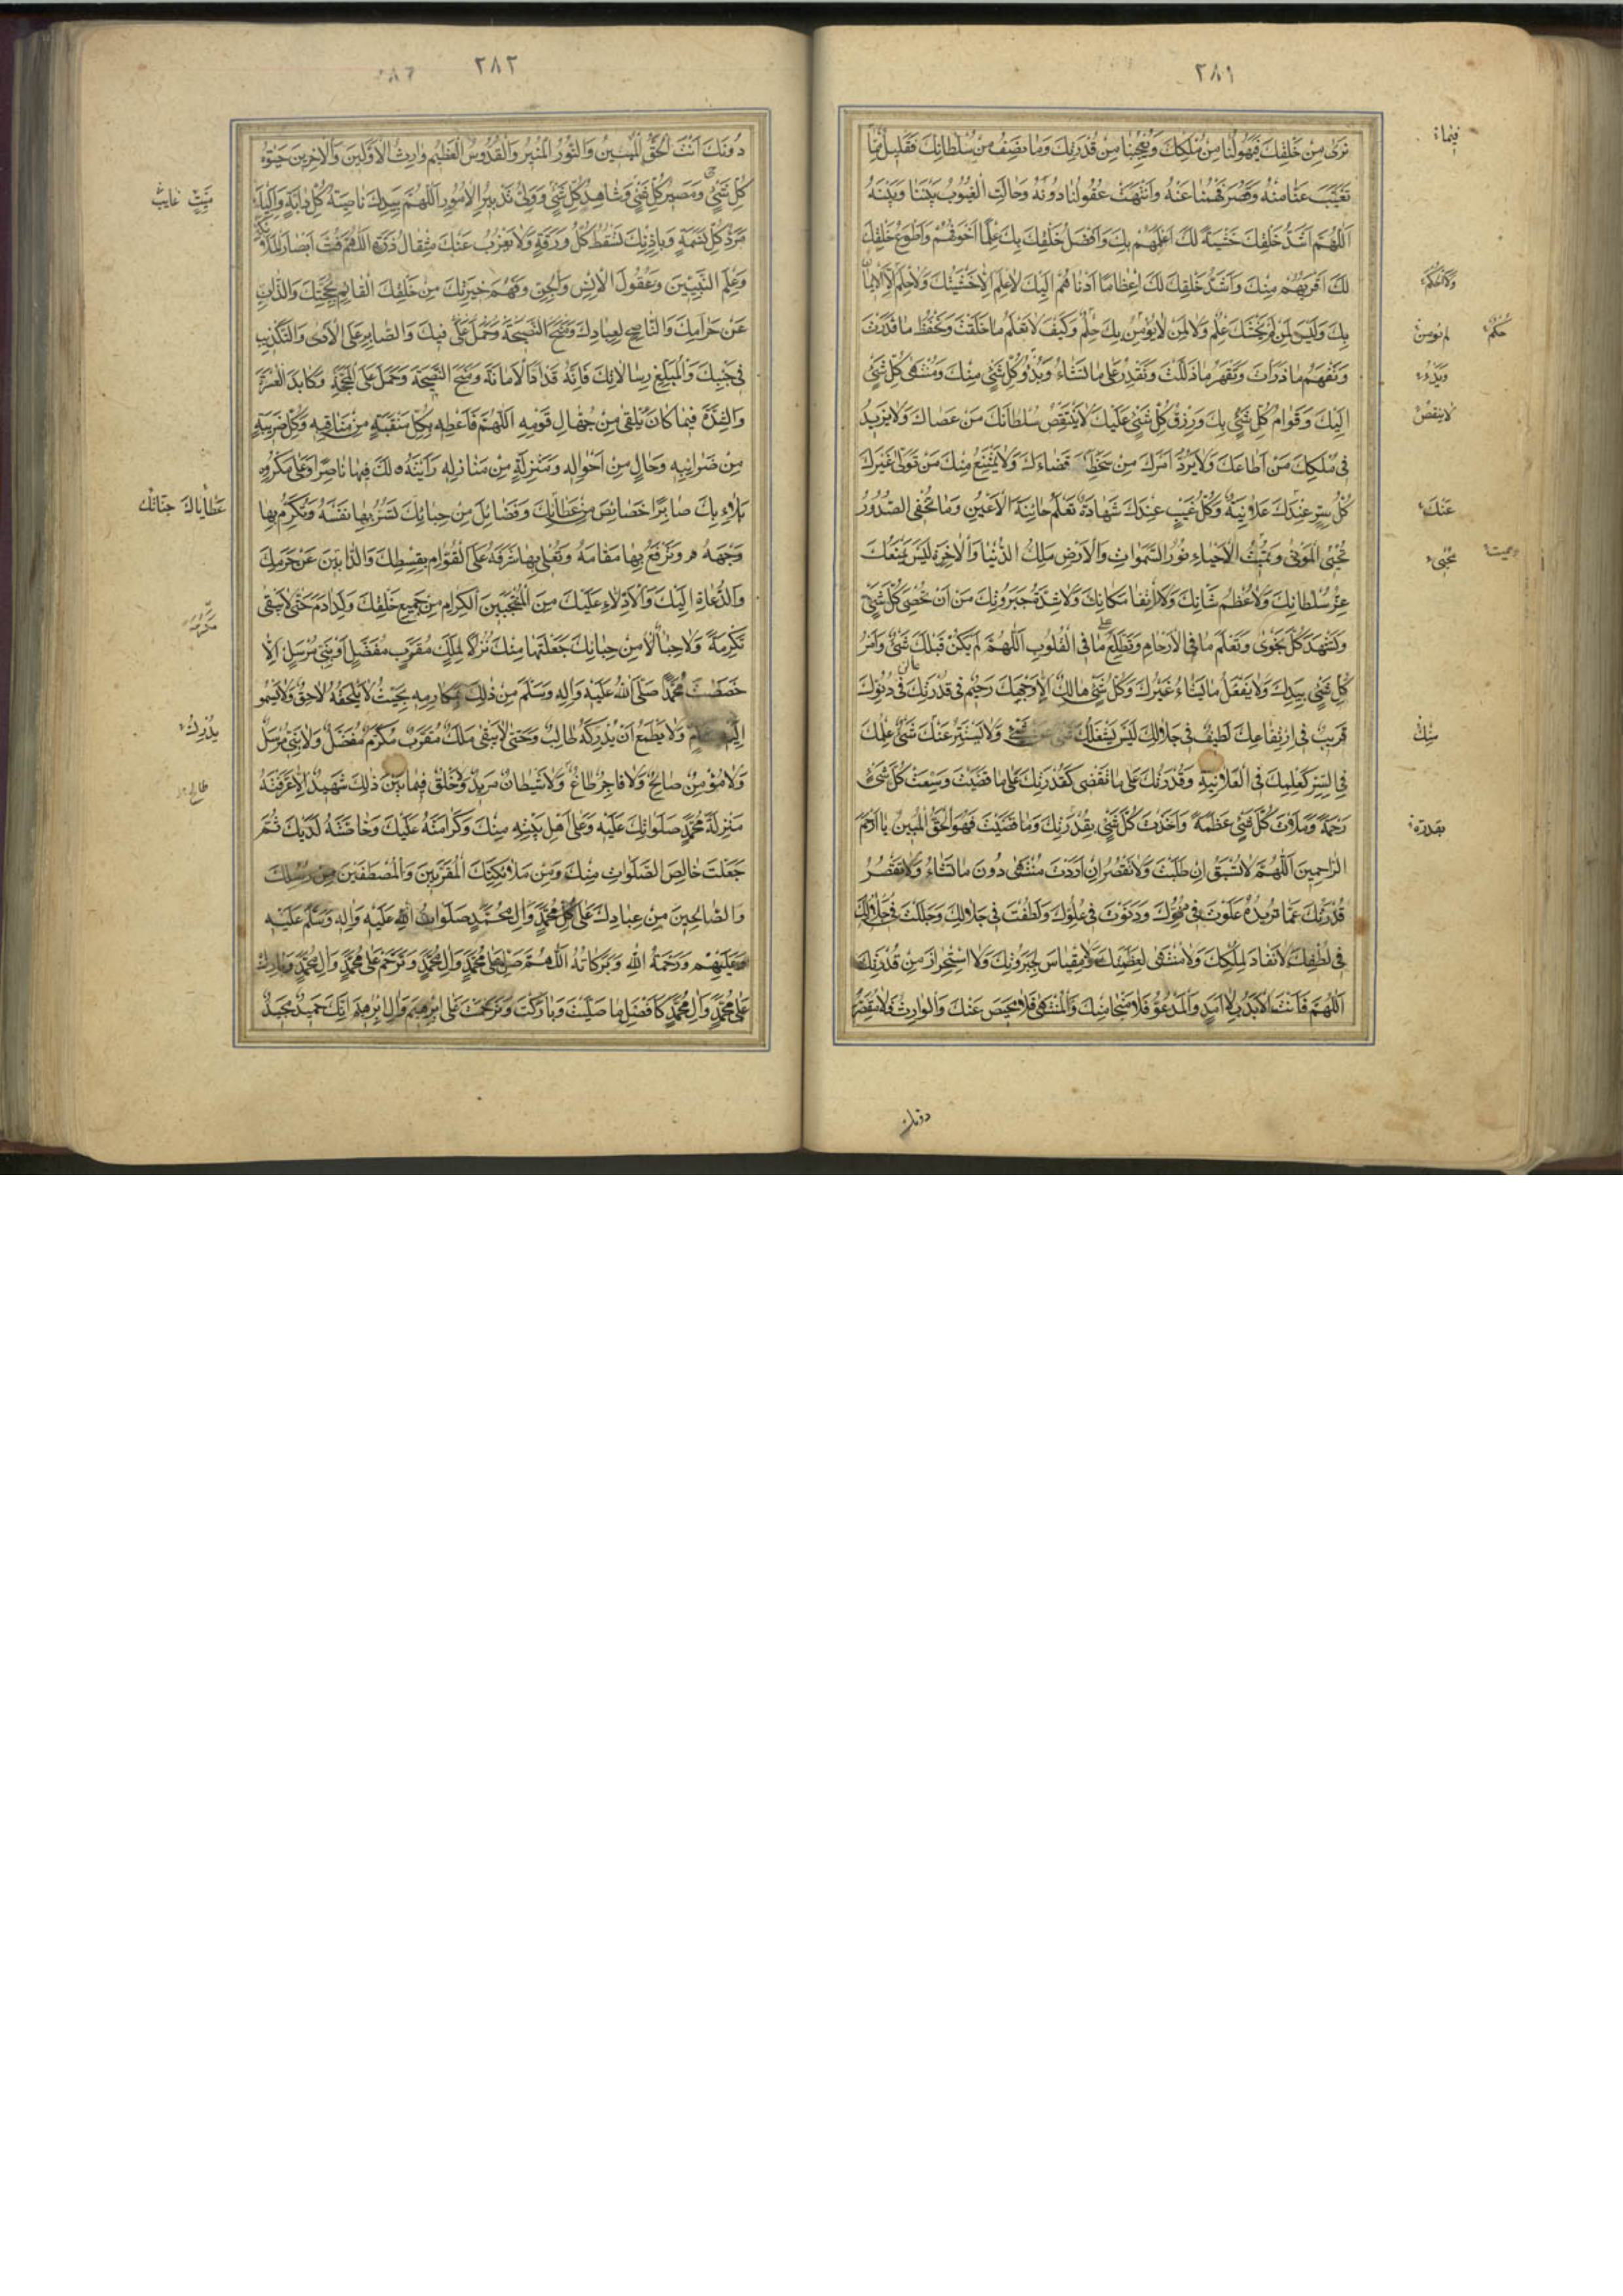 ٢٨١
نَرىٰ مِنْ خَلْقِكَ فَيَهُولُنَا مِنْ مُلْكِكَ وَيُعْجِبُنَا مِنْ قُدْرَتِكَ وَمَا نَصِفُ مِنْ سُلْطَانِكَ فَقَلِيلٌ مِمَّا
تَغَيَّبَ عَنَّا مِنْهُ وَقَصُرَ فَهْمُنَا عَنْهُ وَانْتَهَتْ عُقُولُنَا دُونَهُ وَحَالَتِ الْغُيُوبُ بَيْنَنَا وَبَيْنَهُ
اَللّٰهُمَّ اَشَدُّ خَلْقِكَ خَشْيَةً لَكَ اَعْلَمُهُمْ بِكَ وَاَفْضَلُ خَلْقِكَ بِكَ عِلْمًا اَخْوَفُهُمْ وَاَطْوَعُ خَلْقِكَ
لَكَ اَقْرَبُهُمْ مِنْكَ وَاَشَدُّ خَلْقِكَ لَكَ اِعْظَامًا اَدْنَاهُمْ اِلَيْكَ لَا عِلْمَ اِلَّا خَشْيَتُكَ وَلَا حِلْمَ اِلَّا الْاِيمَانُ
بِكَ وَلَيْسَ لِمَنْ لَمْ يَخْشَكَ عِلْمٌ وَلَا لِمَنْ لَا يُؤْمِنُ بِكَ حِلْمٌ وَكَيْفَ لَا تَعْلَمُ مَا خَلَقْتَ وَتَحْفَظُ مَا قَدَّرْتَ
وَتَفْهَمُ مَا ذَرَأْتَ وَتَقْهَرُ مَا ذَلَّلْتَ وَتَقْدِرُ عَلىٰ مَا تَشَاءُ وَبَدْوُ كُلِّ شَيْءٍ مِنْكَ وَمُنْتَهىٰ كُلِّ شَيْءٍ
اِلَيْكَ وَقِوَامُ كُلِّ شَيْءٍ بِكَ وَرِزْقُ كُلِّ شَيْءٍ عَلَيْكَ لَا يَنْتَقِصُ سُلْطَانَكَ مَنْ عَصَاكَ وَلَا يَزِيدُ
فِي مُلْكِكَ مَنْ اَطَاعَكَ وَلَا يَرُدُّ اَمْرَكَ مَنْ سَخِطَ قَضَاءَكَ وَلَا يَمْتَنِعُ مِنْكَ مَنْ تَوَلّىٰ غَيْرَكَ
كُلُّ سِرٍّ عِنْدَكَ عَلَانِيَةٌ وَكُلُّ غَيْبٍ عِنْدَكَ شَهَادَةٌ تَعْلَمُ خَائِنَةَ الْاَعْيُنِ وَمَا تُخْفِي الصُّدُورُ
تُحْيِي الْمَوْتىٰ وَتُمِيتُ الْاَحْيَاءَ نُورُ السَّمٰوَاتِ وَالْاَرْضِ مَلِكُ الدُّنْيَا وَالْاٰخِرَةِ لَيْسَ يَمْنَعُكَ
عِزُّ سُلْطَانِكَ وَلَا عُظْمُ شَانِكَ وَلَا ارْتِفَاعُ مَكَانِكَ وَلَا شِدَّةُ جَبَرُوتِكَ مِنْ اَنْ تُحْصِيَ كُلَّ شَيْءٍ
وَتَشْهَدَ كُلَّ نَجْوىٰ وَتَعْلَمَ مَا فِي الْاَرْحَامِ وَتَطَّلِعَ مَا فِي الْقُلُوبِ اَللّٰهُمَّ لَمْ يَكُنْ قَبْلَكَ شَيْءٌ وَاَمْرُ
كُلِّ شَيْءٍ بِيَدِكَ وَلَا يَفْعَلُ مَا يَشَاءُ غَيْرُكَ وَكُلُّ شَيْءٍ هَالِكٌ اِلَّا وَجْهَكَ رَحِيمٌ فِي قُدْرَتِكَ عَالٍ فِي دُنُوِّكَ
قَرِيبٌ فِي ارْتِفَاعِكَ لَطِيفٌ فِي جَلَالِكَ لَيْسَ يَشْغَلُكَ شَيْءٌ عَنْ شَيْءٍ وَلَا يَسْتَتِرُ عَنْكَ شَيْءٌ عِلْمُكَ
فِي السِّرِّ كَعِلْمِكَ فِي الْعَلَانِيَةِ وَقُدْرَتُكَ عَلىٰ مَا تَقْضِي كَقُدْرَتِكَ عَلىٰ مَا قَضَيْتَ وَسِعْتَ كُلَّ شَيْءٍ
رَحْمَةً وَمَلَأْتَ كُلَّ شَيْءٍ عَظَمَةً وَاَخَذْتَ كُلَّ شَيْءٍ بِقُدْرَتِكَ وَمَا قَضَيْتَ فَهُوَ الْحَقُّ الْمُبِينُ يَا اَرْحَمَ
الرَّاحِمِينَ اَللّٰهُمَّ لَا تُسْبَقُ اِنْ طَلَبْتَ وَلَا تَقْصُرُ اِنْ اَرَدْتَ مُنْتَهىٰ دُونَ مَا تَشَاءُ وَلَا تَقْصُرُ
قُدْرَتُكَ عَمَّا تُرِيدُ عَلَوْتَ فِي دُنُوِّكَ وَدَنَوْتَ فِي عُلُوِّكَ وَلَطُفْتَ فِي جَلَالِكَ وَجَلَلْتَ فِي
فِي لُطْفِكَ لَا نَفَادَ لِمُلْكِكَ وَلَا مُنْتَهىٰ لِعَظَمَتِكَ وَلَا مِقْيَاسَ لِجَبَرُوتِكَ وَلَا اسْتِحْرَازَ مِنْ قُدْرَتِكَ
اَللّٰهُمَّ فَاَنْتَ الْاَبَدُ بِلَا اَمَدٍ وَالْمَدْعُوُّ فَلَا مَنْجَا مِنْكَ وَالْمُنْتَهىٰ فَلَا مَحِيصَ عَنْكَ وَالْوَارِثُ فَلَا مَقْصَرَ
فيما
حُكْمٌ
لا ينقصُ
عَنْكَ
تُحْيِي
مِنْكَ
بقدرته
دونك
٢٨٢
دُونَكَ اَنْتَ الْحَقُّ الْمُبِينُ وَالنُّورُ الْمُنِيرُ وَالْقُدُّوسُ الْعَظِيمُ وَارِثُ الْاَوَّلِينَ وَالْاٰخِرِينَ حَيٰوةُ
كُلِّ شَيْءٍ وَمَصِيرُ كُلِّ شَيْءٍ وَشَاهِدُ كُلِّ شَيْءٍ وَوَلِيُّ تَدْبِيرِ الْاُمُورِ اَللّٰهُمَّ بِيَدِكَ نَاصِيَةُ كُلِّ دَابَّةٍ وَاِلَيْكَ
مَرَدُّ كُلِّ نَسَمَةٍ وَبِاِذْنِكَ تَسْقُطُ كُلُّ وَرَقَةٍ وَلَا يَعْزُبُ عَنْكَ مِثْقَالُ ذَرَّةٍ اَللّٰهُمَّ فُتَّ اَبْصَارَ الْمَلَائِكَةِ
وَعِلْمَ النَّبِيِّينَ وَعُقُولَ الْاِنْسِ وَالْجِنِّ وَفَهْمَ خِيَرَتِكَ مِنْ خَلْقِكَ الْقَائِمِ بِحُجَّتِكَ وَالذَّابِّ
عَنْ حَرَامِكَ وَالنَّاصِحِ لِعِبَادِكَ فِيكَ وَالصَّابِرِ عَلَى الْاَذىٰ وَالتَّكْذِيبِ
فِي جَنْبِكَ وَالْمُبَلِّغِ رِسَالَاتِكَ فَاِنَّهُ قَدْ اَدَّى الْاَمَانَةَ وَمَنَحَ النَّصِيحَةَ وَحَمَلَ عَلَى الْمَحَجَّةِ وَكَابَدَ الْعُسْرَةَ
وَالشِّدَّةَ فِيمَا كَانَ يَلْقىٰ مِنْ جُهَّالِ قَوْمِهِ اَللّٰهُمَّ فَاَعْطِهِ بِكُلِّ مَنْقَبَةٍ مِنْ مَنَاقِبِهِ وَكُلِّ ضَرِيبَةٍ
مِنْ ضَرَائِبِهِ وَحَالٍ مِنْ اَحْوَالِهِ وَمَنْزِلَةٍ مِنْ مَنَازِلِهِ رَاَيْتَهُ لَكَ فِيهَا نَاصِرًا وَعَلىٰ مَكْرُوهِ
بَلَائِكَ صَابِرًا خَصَائِصَ مِنْ عَطَائِكَ وَفَضَائِلَ مِنْ حِبَائِكَ تَسُرُّ بِهَا نَفْسَهُ وَتُكْرِمُ بِهَا
وَجْهَهُ وَتَرْفَعُ بِهَا مَقَامَهُ وَتُعْلِي بِهَا شَرَفَهُ عَلَى الْقُوَّامِ بِقِسْطِكَ وَالذَّابِّينَ عَنْ حَرَمِكَ
وَالدُّعَاةِ اِلَيْكَ وَالْاَدِلَّاءِ عَلَيْكَ مِنَ الْمُنْتَجَبِينَ الْكِرَامِ مِنْ جَمِيعِ خَلْقِكَ وَلَدِ اٰدَمَ حَتّىٰ لَا تَبْقىٰ
تَكْرِمَةٌ وَلَا حِبَاءٌ مِنْ حِبَائِكَ جَعَلْتَهَا مِنْكَ نُزُلًا لِمَلَكٍ مُقَرَّبٍ مُفَضَّلٍ اَوْ نَبِيٍّ مُرْسَلٍ اِلَّا
خَصَصْتَ مُحَمَّدًا صَلَّى اللّٰهُ عَلَيْهِ وَاٰلِهِ وَسَلَّمَ مِنْ ذٰلِكَ بِمَكَارِمِهِ بِحَيْثُ لَا يَلْحَقُهُ لَاحِقٌ وَلَا يَسْمُو
اِلَيْهِ سَامٍ وَلَا يَطْمَعُ اَنْ يُدْرِكَهُ طَالِبٌ وَحَتّىٰ لَا يَبْقىٰ مَلَكٌ مُقَرَّبٌ مُكَرَّمٌ مُفَضَّلٌ وَلَا نَبِيٌّ مُرْسَلٌ
وَلَا مُؤْمِنٌ صَالِحٌ وَلَا فَاجِرٌ طَاغٍ وَلَا شَيْطَانٌ مَرِيدٌ وَخَلْقٌ فِيمَا بَيْنَ ذٰلِكَ شَهِيدٌ اِلَّا عَرَّفْتَهُ
مَنْزِلَةَ مُحَمَّدٍ صَلَوَاتُكَ عَلَيْهِ وَعَلىٰ اَهْلِ بَيْتِهِ مِنْكَ وَكَرَامَتَهُ عَلَيْكَ وَخَاصَّتَهُ لَدَيْكَ ثُمَّ
جَعَلْتَ خَالِصَ الصَّلَوَاتِ مِنْكَ وَمِنْ مَلَائِكَتِكَ الْمُقَرَّبِينَ وَالْمُصْطَفَيْنَ مِنْ رُسُلِكَ
وَالصَّالِحِينَ مِنْ عِبَادِكَ عَلىٰ مُحَمَّدٍ وَاٰلِ مُحَمَّدٍ صَلَوَاتُ اللّٰهِ عَلَيْهِ وَاٰلِهِ وَسَلَّمَ عَلَيْهِ
وَعَلَيْهِمْ وَرَحْمَةُ اللّٰهِ وَبَرَكَاتُهُ اَللّٰهُمَّ صَلِّ عَلىٰ مُحَمَّدٍ وَاٰلِ مُحَمَّدٍ وَتَرَحَّمْ عَلىٰ مُحَمَّدٍ وَاٰلِ مُحَمَّدٍ وَبَارِكْ
عَلىٰ مُحَمَّدٍ وَاٰلِ مُحَمَّدٍ كَاَفْضَلِ مَا صَلَّيْتَ وَبَارَكْتَ وَتَرَحَّمْتَ عَلىٰ اِبْرٰهِيمَ وَاٰلِ اِبْرٰهِيمَ اِنَّكَ حَمِيدٌ مَجِيدٌ
عَطَايَاكَ جنانك
يُدْرِكُ